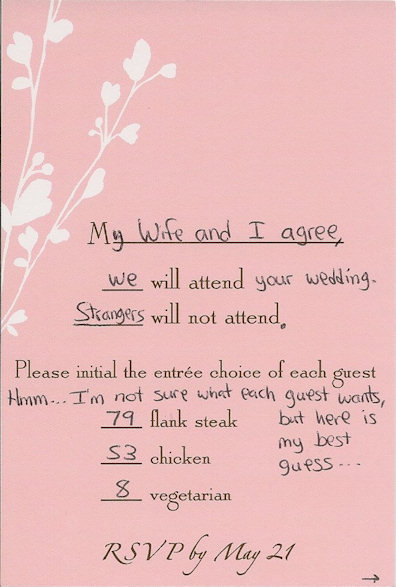 My Wife and I agree,
we will attend your wedding.
Strangers will not attend.
Please initial the entrée choice of each guest
Hmm... I'm not sure what each guest wants,
79 flank steak but here is
my best
53 chicken
guess...
8 vegetarian
RSVP by May 21
→